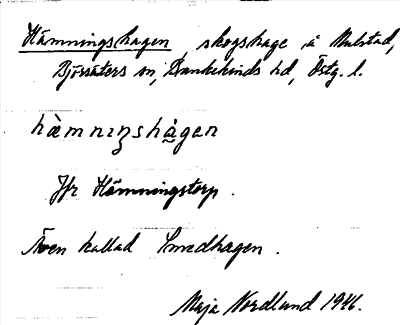 Hämningshagen, skogshage å Mulstad,
Björsäters sn, Bankekinds hd, Östg. l.
hàmnıŋshàgen
Jfr Hämningstorp.
Även kallad Smedhagen.
Maja Nordlund 1946.